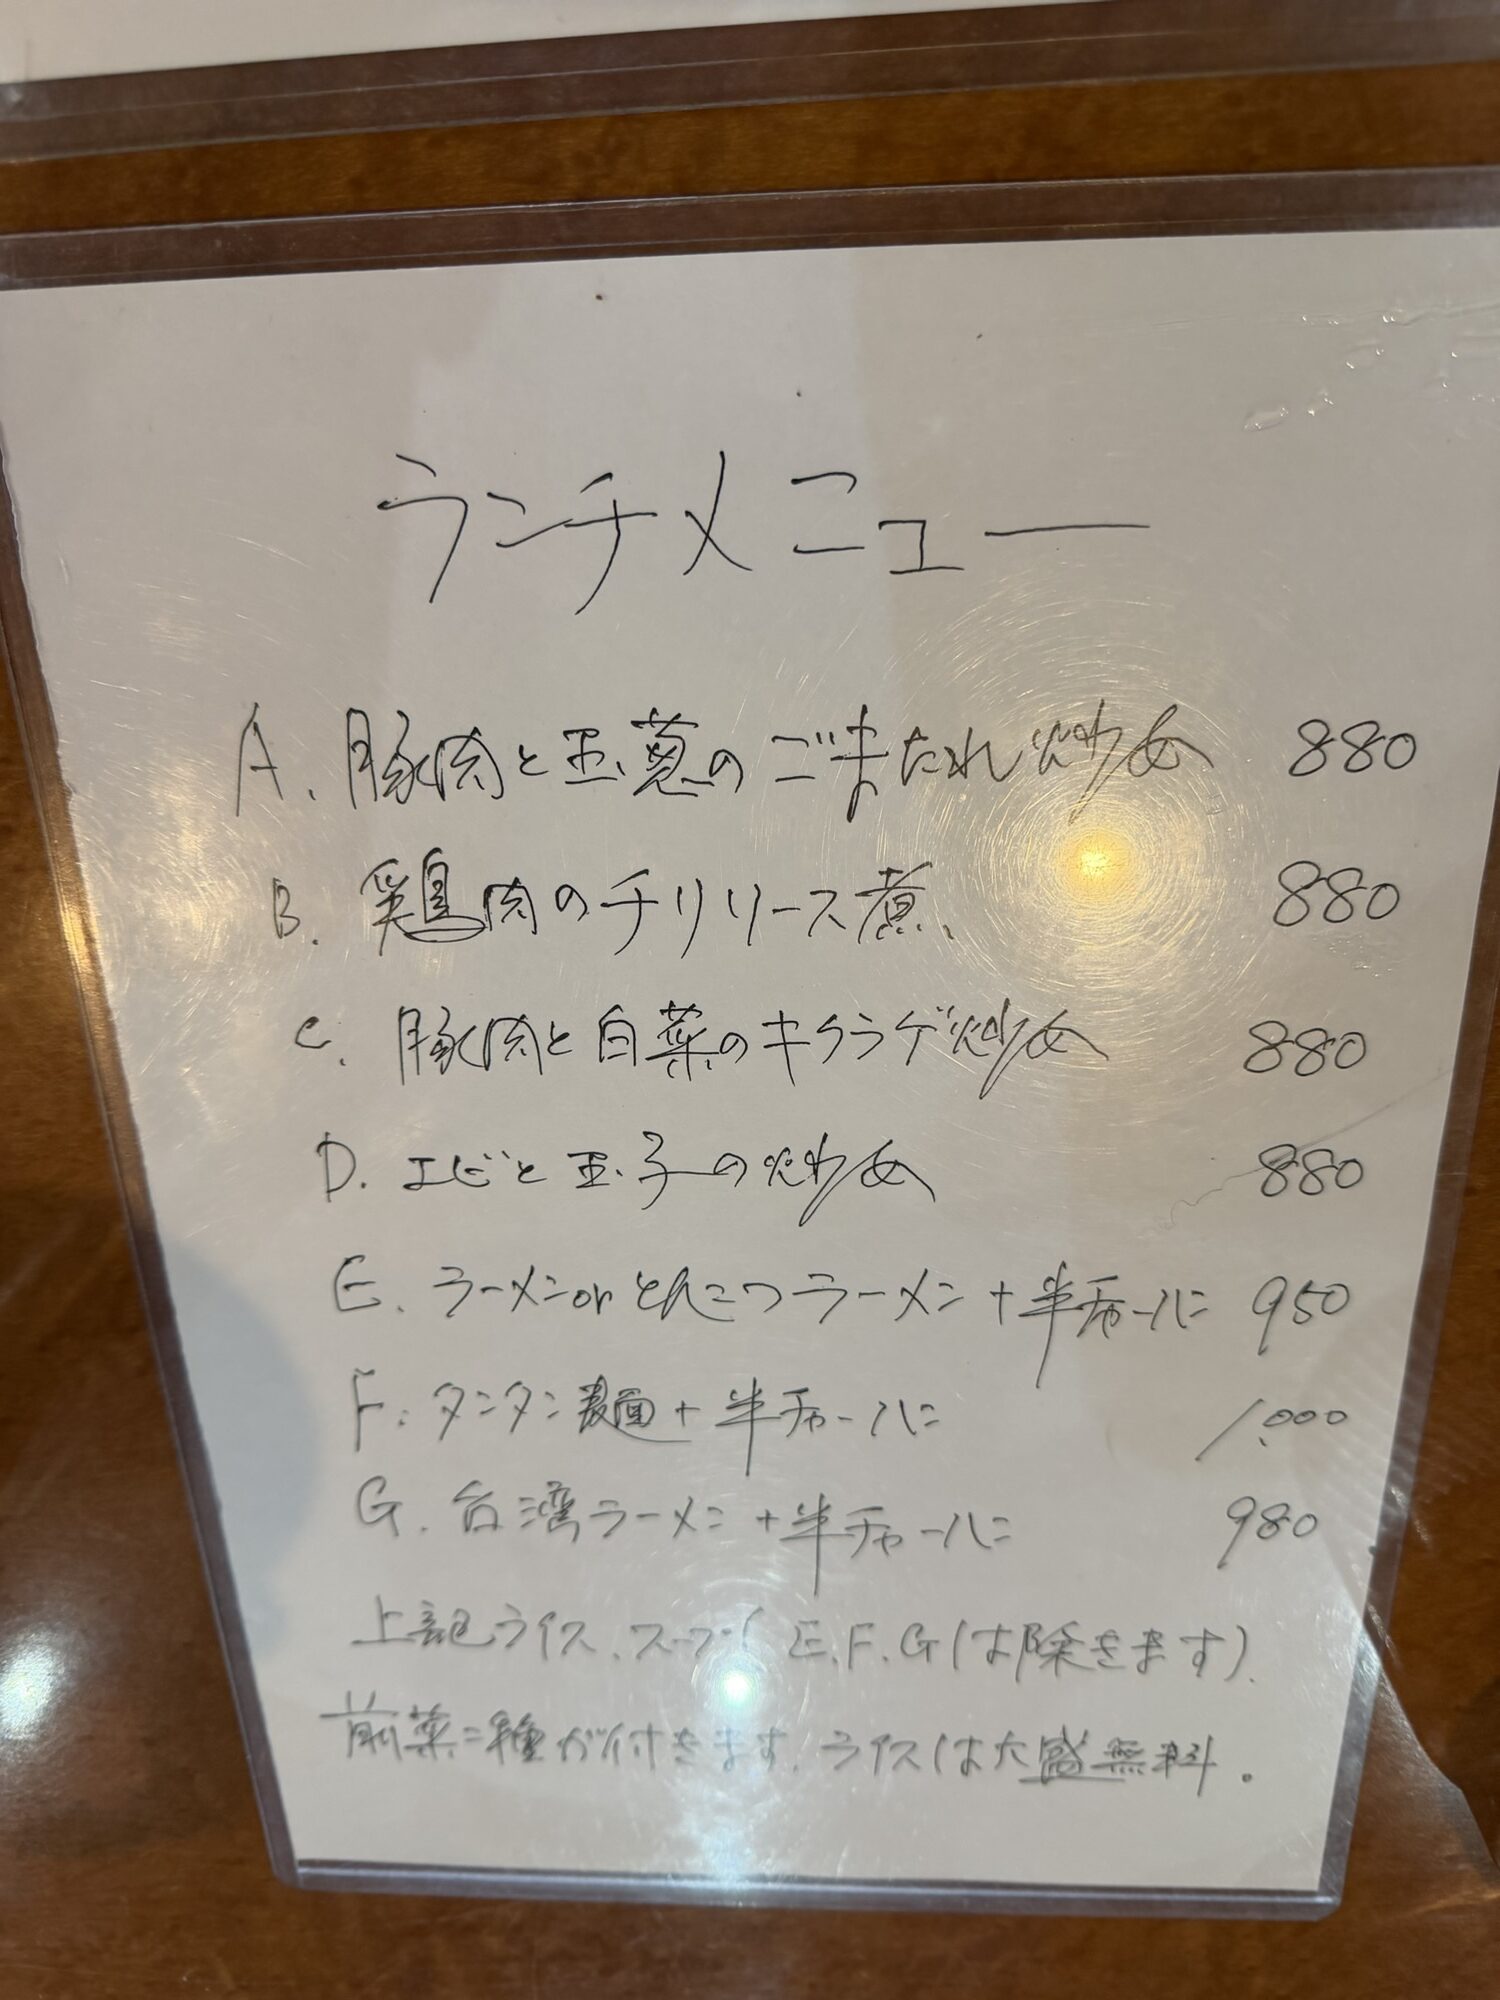 ランチメニュー
A. 豚肉と玉葱のごまたれ炒め 880
B. 鶏肉のチリソース煮 880
C. 豚肉と白菜のキクラゲ炒め 880
D. エビと玉子の炒め 880
E. ラーメンorとんこつラーメン+半チャーハン 950
F. タンタン麺+半チャーハン 1,000
G. 台湾ラーメン+半チャーハン 980
上記ライス、スープ(E.F.Gは除きます).
前菜二種が付きます. ライスは大盛無料。